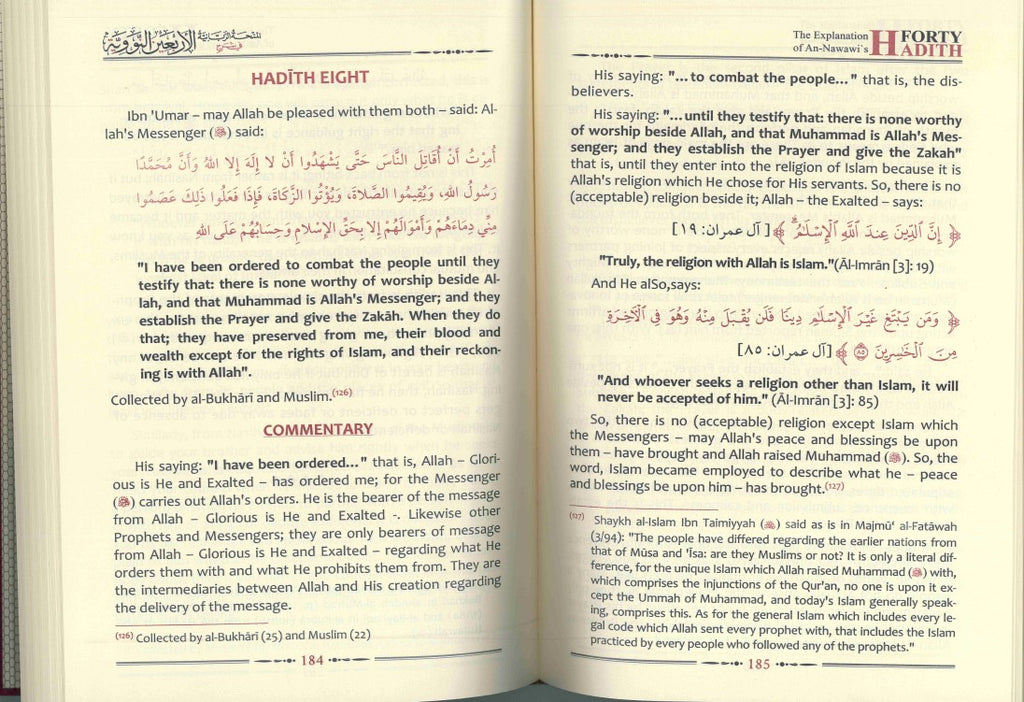 المنحة الربانية في شرح الأربعين النووية
HADĪTH EIGHT
Ibn 'Umar – may Allah be pleased with them both – said: Al-
lah's Messenger (ﷺ) said:
أُمِرْتُ أَنْ أُقَاتِلَ النَّاسَ حَتَّى يَشْهَدُوا أَنْ لا إِلَهَ إِلا اللهُ وَأَنَّ مُحَمَّدًا
رَسُولُ اللهِ، وَيُقِيمُوا الصَّلاةَ، وَيُؤْتُوا الزَّكَاةَ، فَإِذَا فَعَلُوا ذَلِكَ عَصَمُوا
مِنِّي دِمَاءَهُمْ وَأَمْوَالَهُمْ إِلا بِحَقِّ الإِسْلامِ وَحِسَابُهُمْ عَلَى اللهِ
"I have been ordered to combat the people until they
testify that: there is none worthy of worship beside Al-
lah, and that Muhammad is Allah's Messenger; and they
establish the Prayer and give the Zakāh. When they do
that; they have preserved from me, their blood and
wealth except for the rights of Islam, and their reckon-
ing is with Allah".
Collected by al-Bukhārī and Muslim.(126)
COMMENTARY
His saying: "I have been ordered..." that is, Allah – Glori-
ous is He and Exalted – has ordered me; for the Messenger
(ﷺ) carries out Allah's orders. He is the bearer of the message
from Allah – Glorious is He and Exalted -. Likewise other
Prophets and Messengers; they are only bearers of message
from Allah – Glorious is He and Exalted – regarding what He
orders them with and what He prohibits them from. They are
the intermediaries between Allah and His creation regarding
the delivery of the message.
(126) Collected by al-Bukhārī (25) and Muslim (22)
184
The Explanation
of An-Nawawi's
FORTY
HADITH
His saying: "...to combat the people..." that is, the dis-
believers.
His saying: "...until they testify that: there is none worthy
of worship beside Allah, and that Muhammad is Allah's Mes-
senger; and they establish the Prayer and give the Zakah"
that is, until they enter into the religion of Islam because it is
Allah's religion which He chose for His servants. So, there is no
(acceptable) religion beside it; Allah – the Exalted – says:
﴿ إِنَّ ٱلدِّينَ عِندَ ٱللَّهِ ٱلْإِسْلَٰمُ ﴾ [آل عمران: ١٩]
"Truly, the religion with Allah is Islam."(Āl-Imrān [3]: 19)
And He alSo,says:
﴿ وَمَن يَبْتَغِ غَيْرَ ٱلْإِسْلَٰمِ دِينًا فَلَن يُقْبَلَ مِنْهُ وَهُوَ فِى ٱلْءَاخِرَةِ
مِنَ ٱلْخَٰسِرِينَ ٨٥ ﴾ [آل عمران: ٨٥]
"And whoever seeks a religion other than Islam, it will
never be accepted of him." (Āl-Imrān [3]: 85)
So, there is no (acceptable) religion except Islam which
the Messengers – may Allah's peace and blessings be upon
them – have brought and Allah raised Muhammad (ﷺ). So, the
word, Islam became employed to describe what he – peace
and blessings be upon him – has brought.(127)
(127) Shaykh al-Islam Ibn Taimiyyah (﵀) said as is in Majmū‘ al-Fatāwah
(3/94): "The people have differed regarding the earlier nations from
that of Mūsa and 'Īsa: are they Muslims or not? It is only a literal dif-
ference, for the unique Islam which Allah raised Muhammad (ﷺ) with,
which comprises the injunctions of the Qur'an, no one is upon it ex-
cept the Ummah of Muhammad, and today's Islam generally speak-
ing, comprises this. As for the general Islam which includes every le-
gal code which Allah sent every prophet with, that includes the Islam
practiced by every people who followed any of the prophets."
185